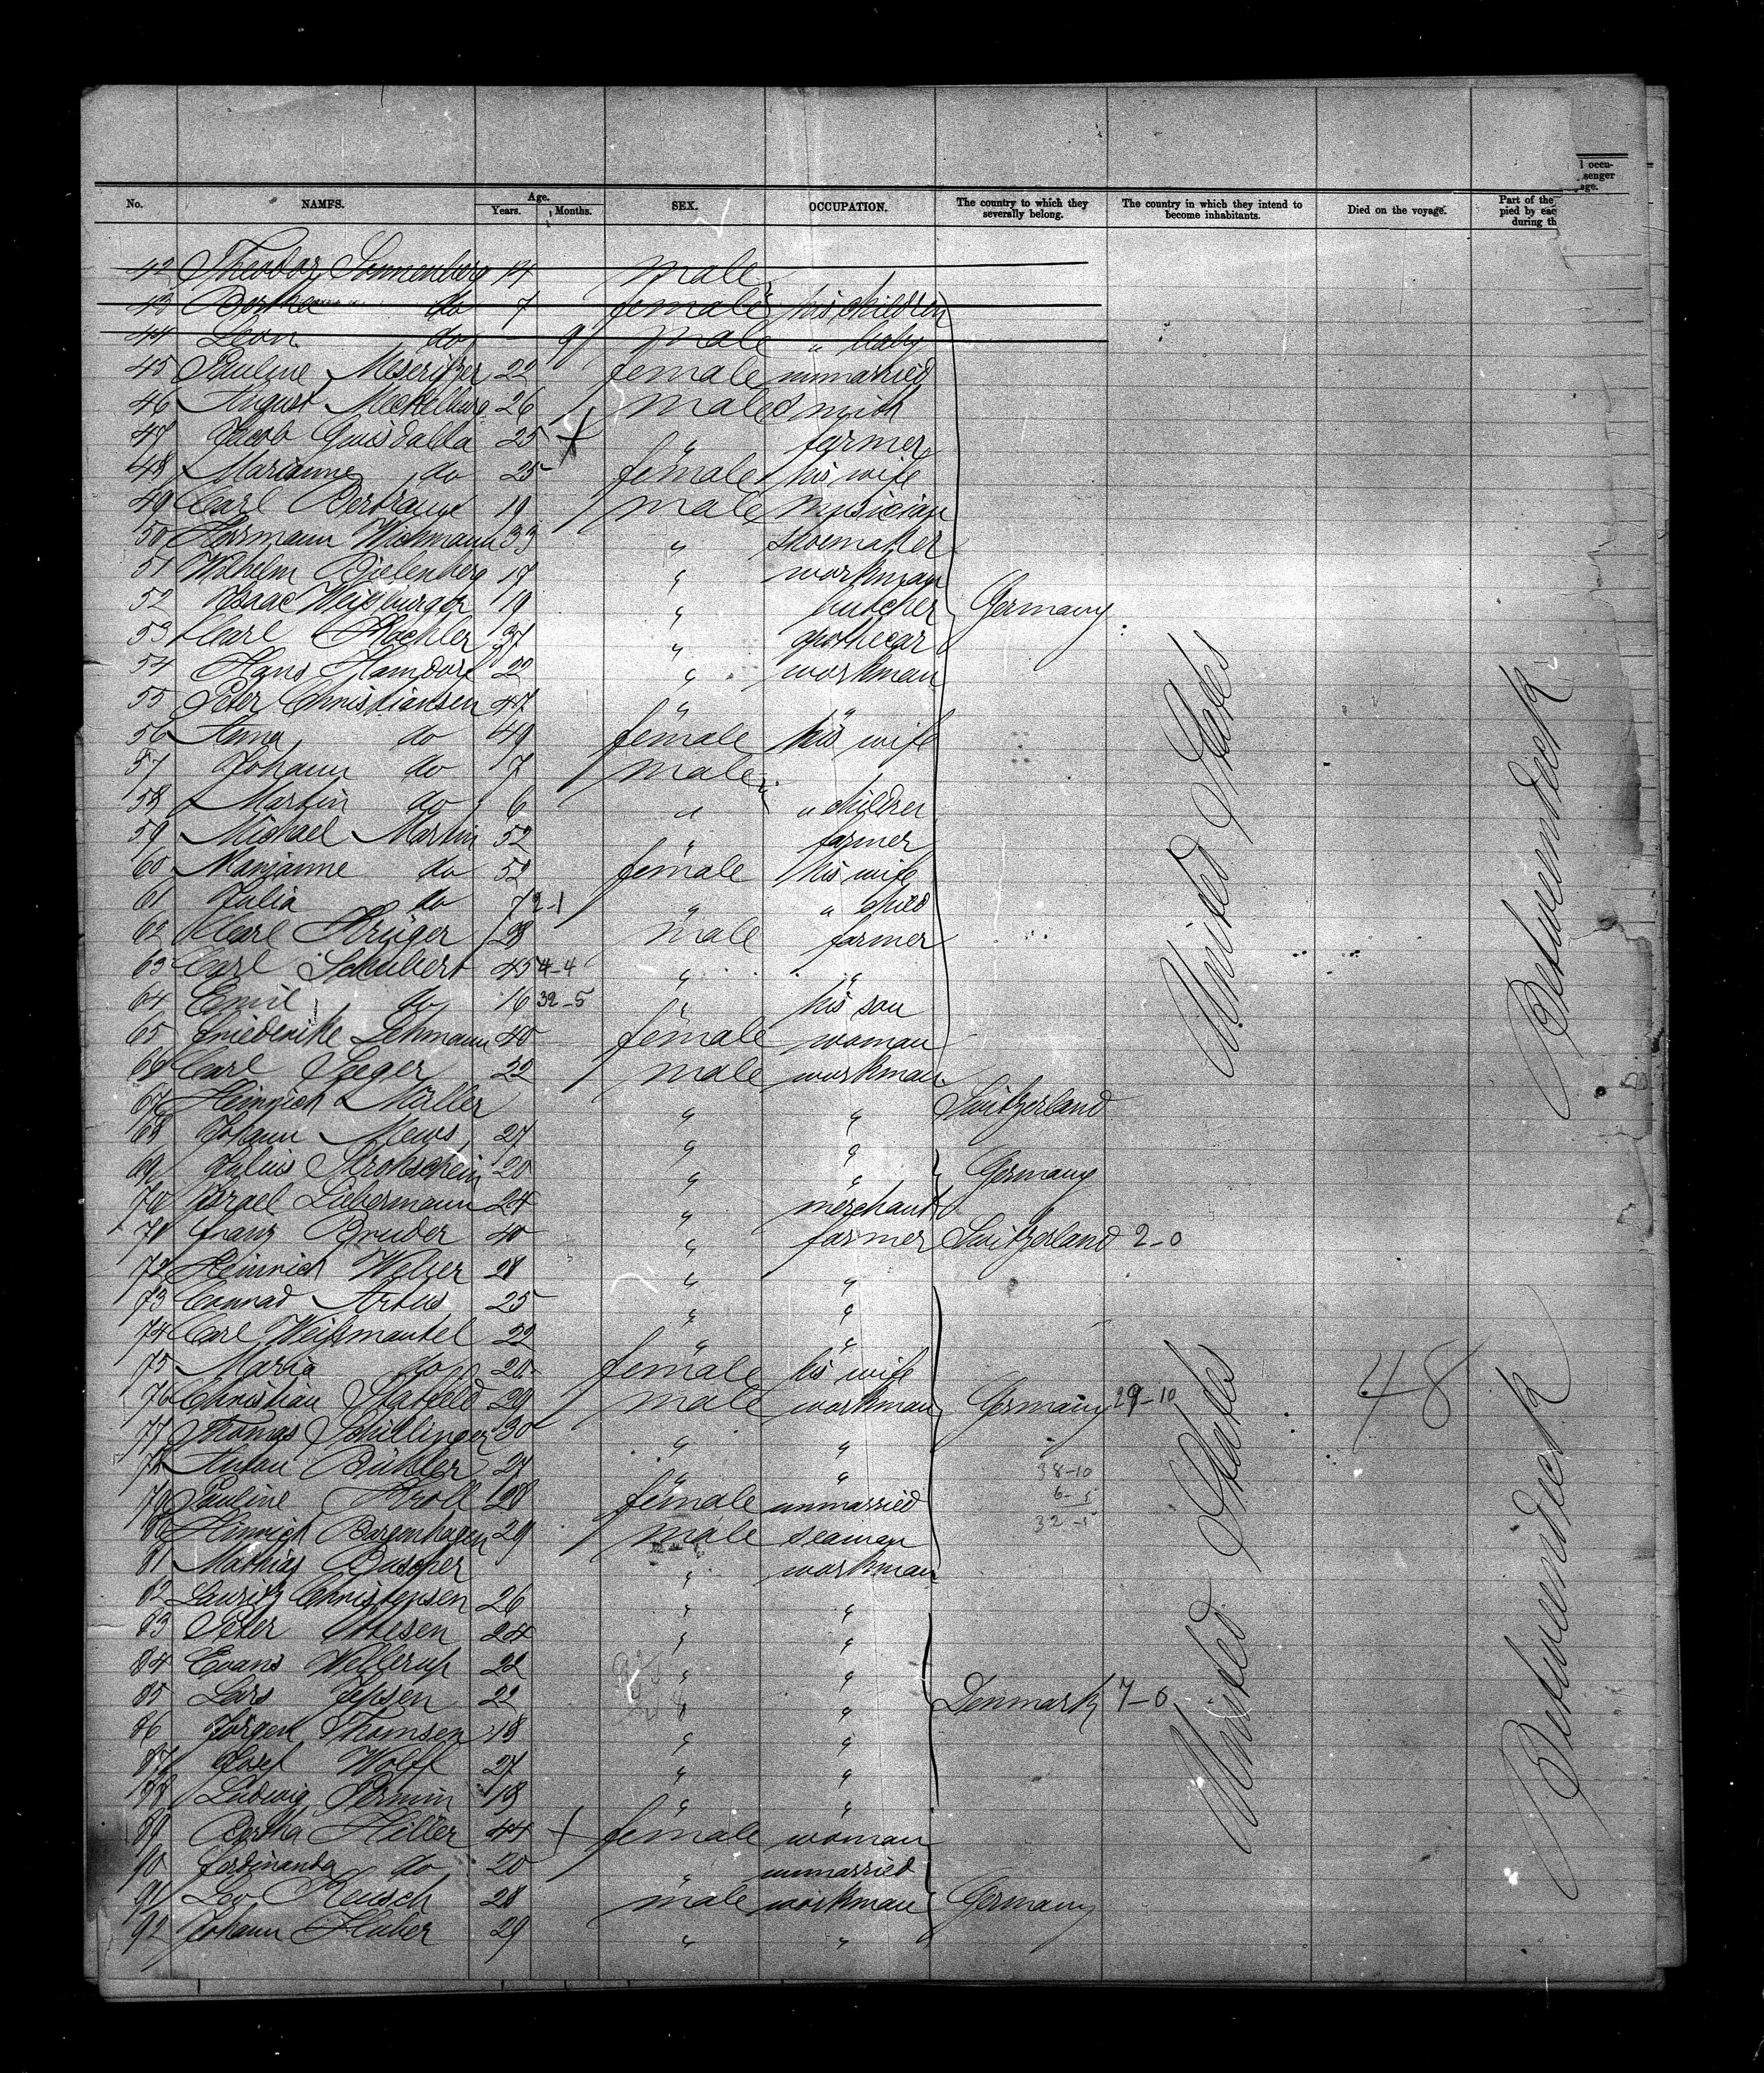 l occu-
senger
age.
No. NAMES. Age. Years. Months. SEX. OCCUPATION. The country to which they severally belong. The country in which they intend to become inhabitants. Died on the voyage. Part of the
pied by eac
during th
42 Theodor Sonnenberg 14 male
43 Bertha do 7 female his children
44 Leon do - 9 male " baby
45 Pauline Meseritzer 22 female unmarried
46 August Mecklburg 26 male smith
47 Jacob 25 " farmer
48 Marianne do 25 female his wife
49 Carl 19 male musician
50 Herrmann Wichmann 33 " shoemaker
51 Wilhelm Bielenberg 17 " workman
52 Isaac Weisburger 19 " butcher Germany
53 Carl " apothecar
54 Hans Hamdorf 22 " workman
55 Peter Christiansen 47 " "
56 Anna do 49 female his wife
57 Johann do 7 male
58 Martin do 6 " " children
59 Michael Martin 52 " farmer
60 Marianne do 52 female his wife
61 Julia do 7 2-1 " " child
62 Carl Krüger 28 male farmer
63 Carl Schubert 45 4-4 " "
64 Emil do 16 32-5 " his son
65 Friederike Lehmann 40 female woman
66 Carl Seeger 22 male workman
67 Heinrich Müller " " Switzerland
68 Johann Mews 27 " "
69 Julius Strohschein 20 " " Germany
70 Israel Liebermann 24 " merchant
71 Franz Bruder 40 " farmer Switzerland 2-0
72 Heinrich Welzer 28 " "
73 Conrad Artus 25 " "
74 Carl Weissmantel 22 " "
75 Maria do 20 female his wife
76 Christian 29 male workman Germany 29-10
77 Thomas Schillinger 30 " "
78 Anton Bühler 27 " " 38-10
79 Pauline Kroll 28 female unmarried 6-5
80 Hinrich Bargenhagen 29 male seaman 32-5
81 Mathias Buscher " workman
82 Lauritz Christensen 26 " "
83 Peter Ottesen 24 " "
84 Evans Wellerup 22 " "
85 Lars Jepsen 22 " " Denmark 7-0
86 Jörgen Thomsen 18 " "
87 Josef Wolff 27 " "
88 Ludwig Permin 18 " "
89 Bertha Hiller 44 female woman
90 Ferdinanda do 20 " unmarried
91 Leo Reusch 28 male workman Germany
92 Johann Huber 29 " "
United States
Betweendeck
United States
48
Betweendeck